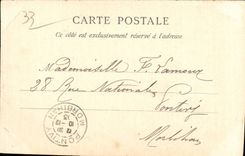 33
CARTE POSTALE
Ce côté est exclusivement réservé à l'adresse
Mademoiselle F. Lamour
28 Rue Nationale
Pontivy
Morbihan
PONTIVY
MORBIHAN